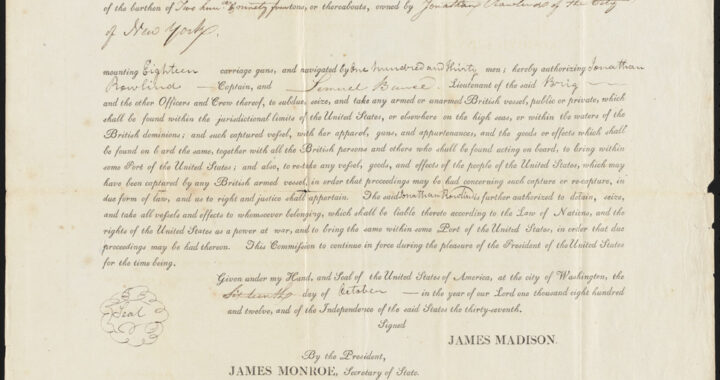 of the burthen of Two hun. ninety four tons, or thereabouts, owned by Jonathan Rowland of the City
of New York.
mounting Eighteen carriage guns, and navigated by One hundred and thirty men; hereby authorizing Jonathan
Rowlind Captain, and Samuel Lieutenant of the said Brig
and the other Officers and Crew thereof, to subdue, seize, and take any armed or unarmed British vessel, public or private, which
shall be found within the jurisdictional limits of the United States, or elsewhere on the high seas, or within the waters of the
British dominions; and such captured vessel, with her apparel, guns, and appurtenances, and the goods or effects which shall
be found on board the same, together with all the British persons and others who shall be found acting on board, to bring within
some Port of the United States; and also, to re-take any vessel, goods, and effects of the people of the United States, which may
have been captured by any British armed vessel, in order that proceedings may be had concerning such capture or re-capture, in
due form of law, and as to right and justice shall appertain. The said Jonathan Rowlind is further authorized to detain, seize,
and take all vessels and effects to whomsoever belonging, which shall be liable thereto according to the Law of Nations, and the
rights of the United States as a power at war, and to bring the same within some Port of the United States, in order that due
proceedings may be had thereon. This Commission to continue in force during the pleasure of the President of the United States
for the time being.
Given under my Hand, and Seal of the United States of America, at the city of Washington, the
Sixteenth day of October in the year of our Lord one thousand eight hundred
and twelve, and of the Independence of the said States the thirty-seventh.
Seal
Signed
JAMES MADISON.
By the President,
JAMES MONROE, Secretary of State.